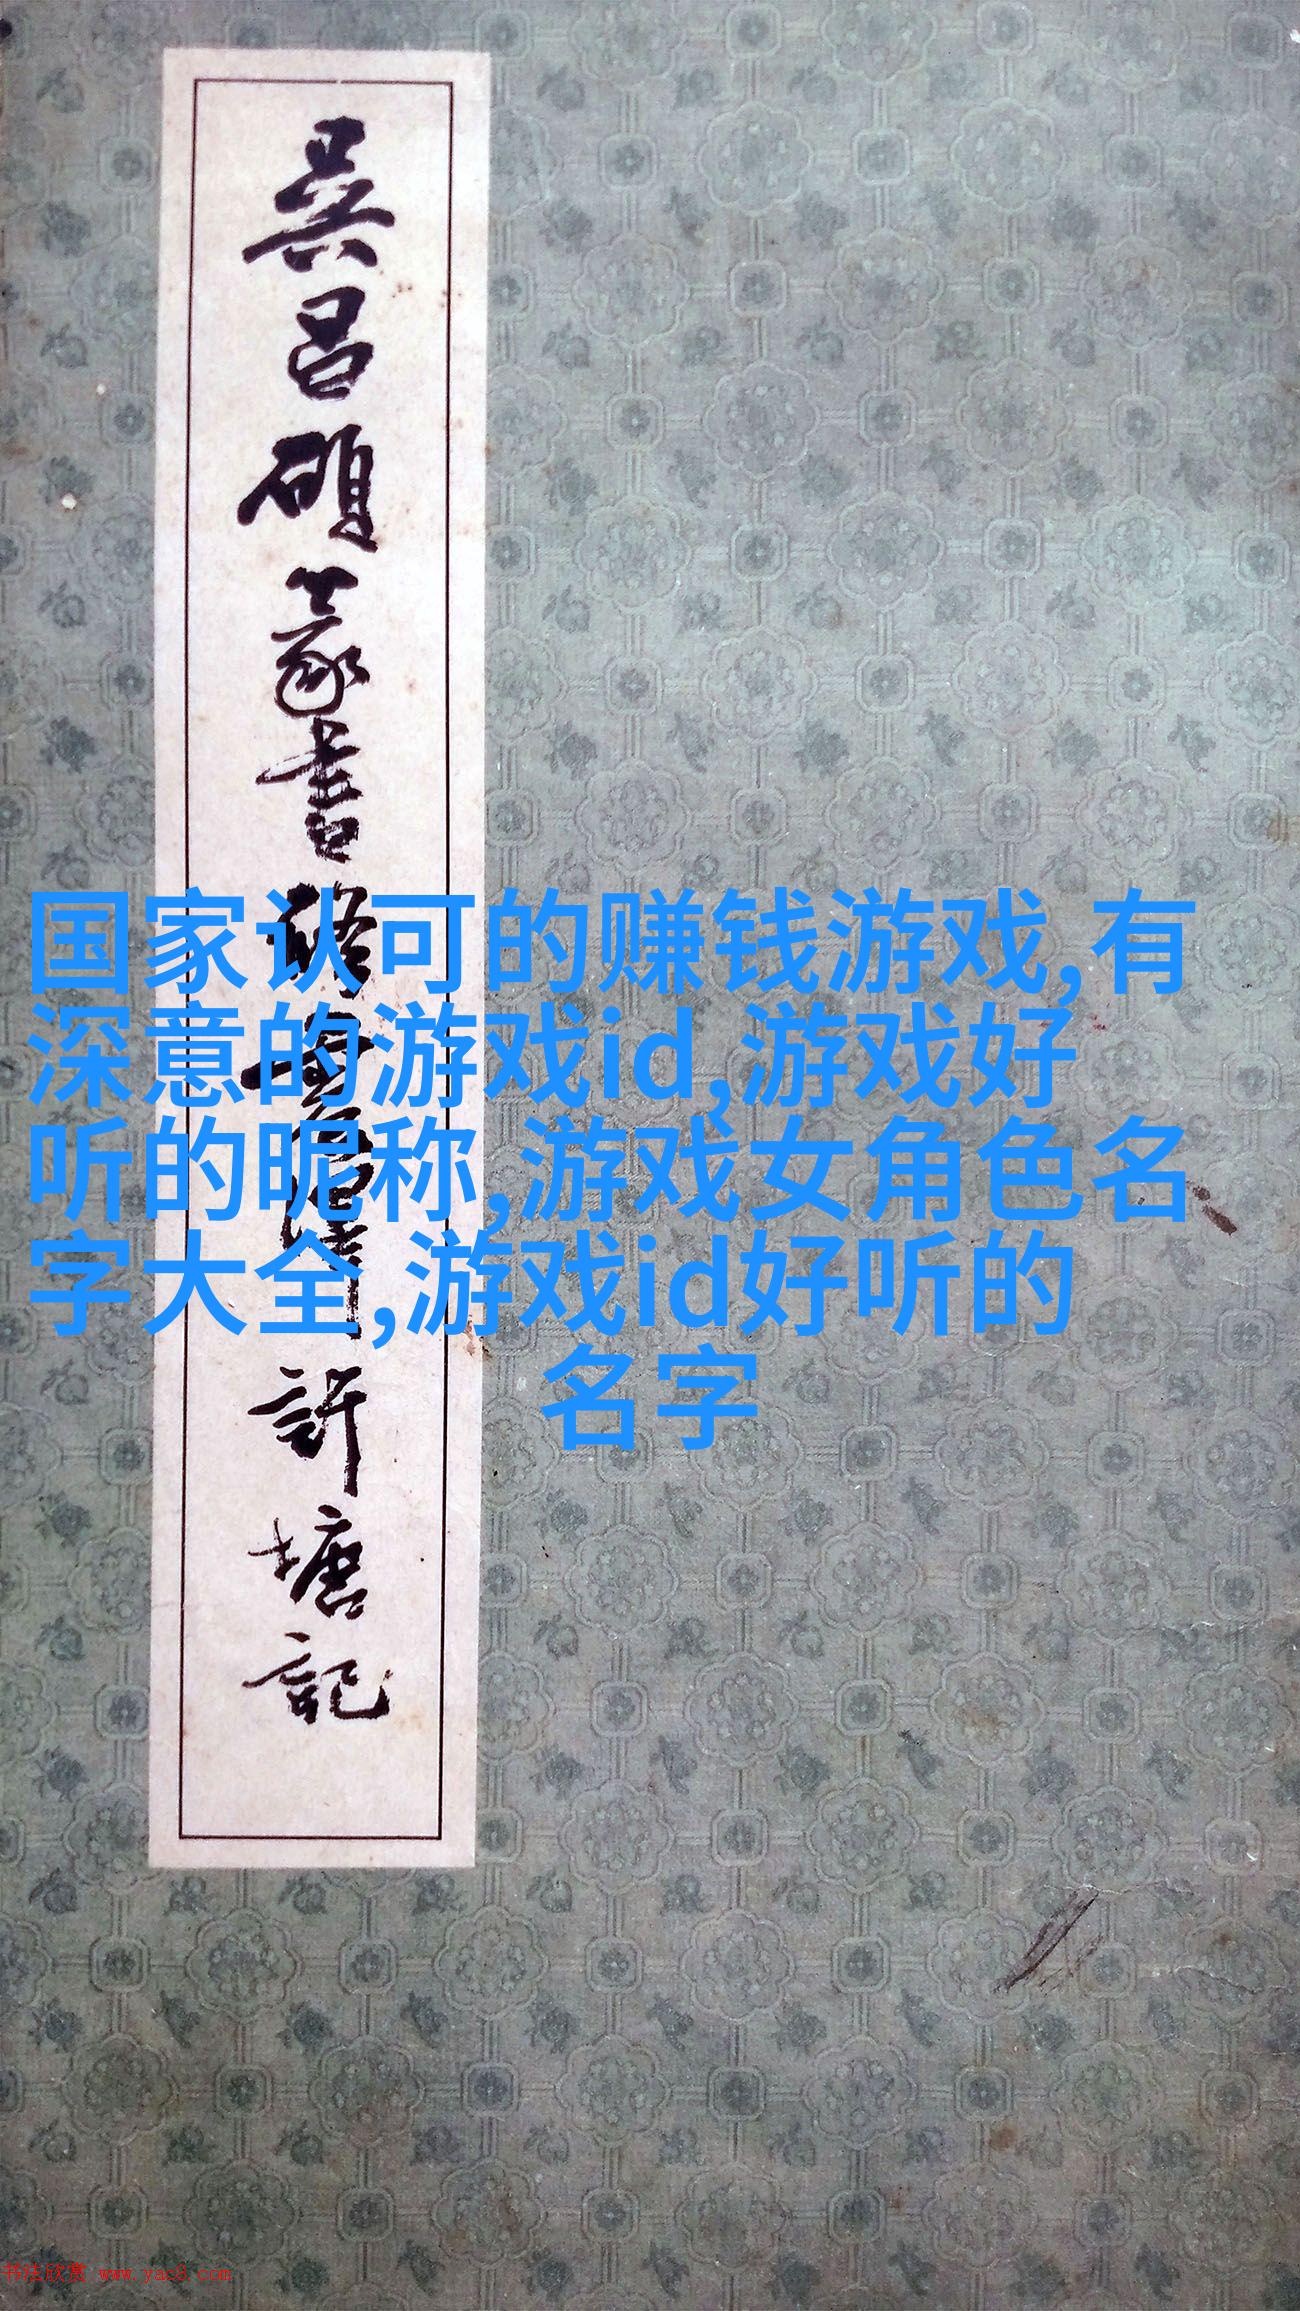 吳昌碩篆書修震澤許塘記
国家认可的赚钱游戏,有
深意的游戏id,游戏好
听的昵称,游戏女角色名
字大全,游戏id好听的
名字
书法欣赏 www.yac8.com